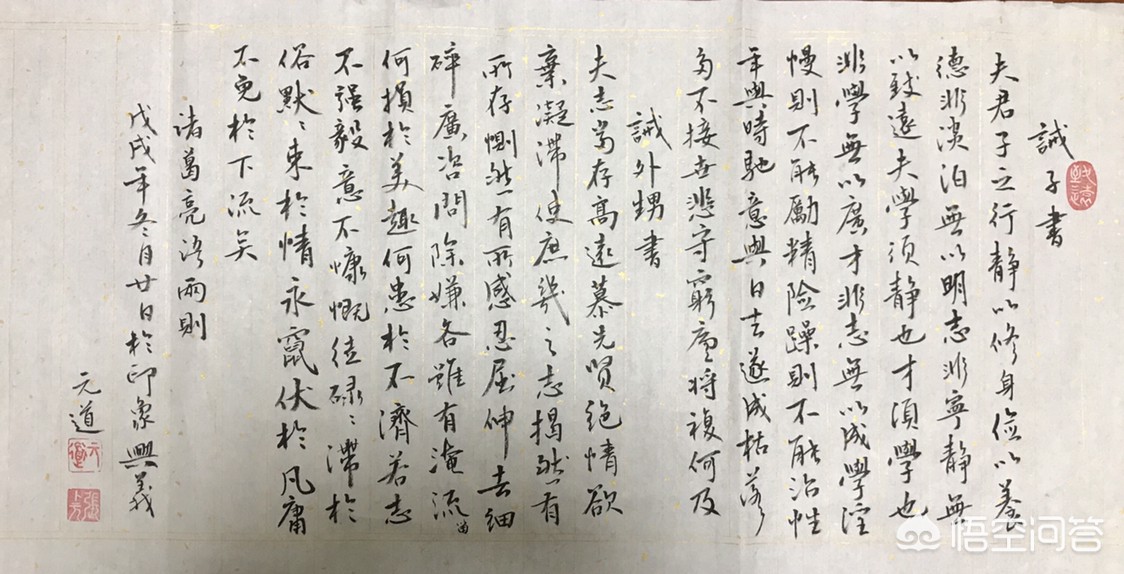 誡子書
致遠
夫君子之行静以修身儉以養
德非淡泊無以明志非寧静無
以致遠夫學須静也才須學也
非學無以廣才非志無以成學淫
慢則不能勵精險躁則不能治性
年與時馳意與日去遂成枯落
多不接世悲守窮廬將複何及
誡外甥書
夫志當存高遠慕先贤絶情欲
棄凝滯使庶幾之志揭然有
所存惻然有所感忍屈伸去細
碎廣咨問除嫌吝雖有淹流
何損於美趣何患於不濟若志
不强毅意不慷慨徒碌〻滯於
俗默〻束於情永竄伏於凡庸
不免於下流矣
諸葛亮语兩則
戊戌年冬月廿日於印象興義
元道
元道
悟空问答